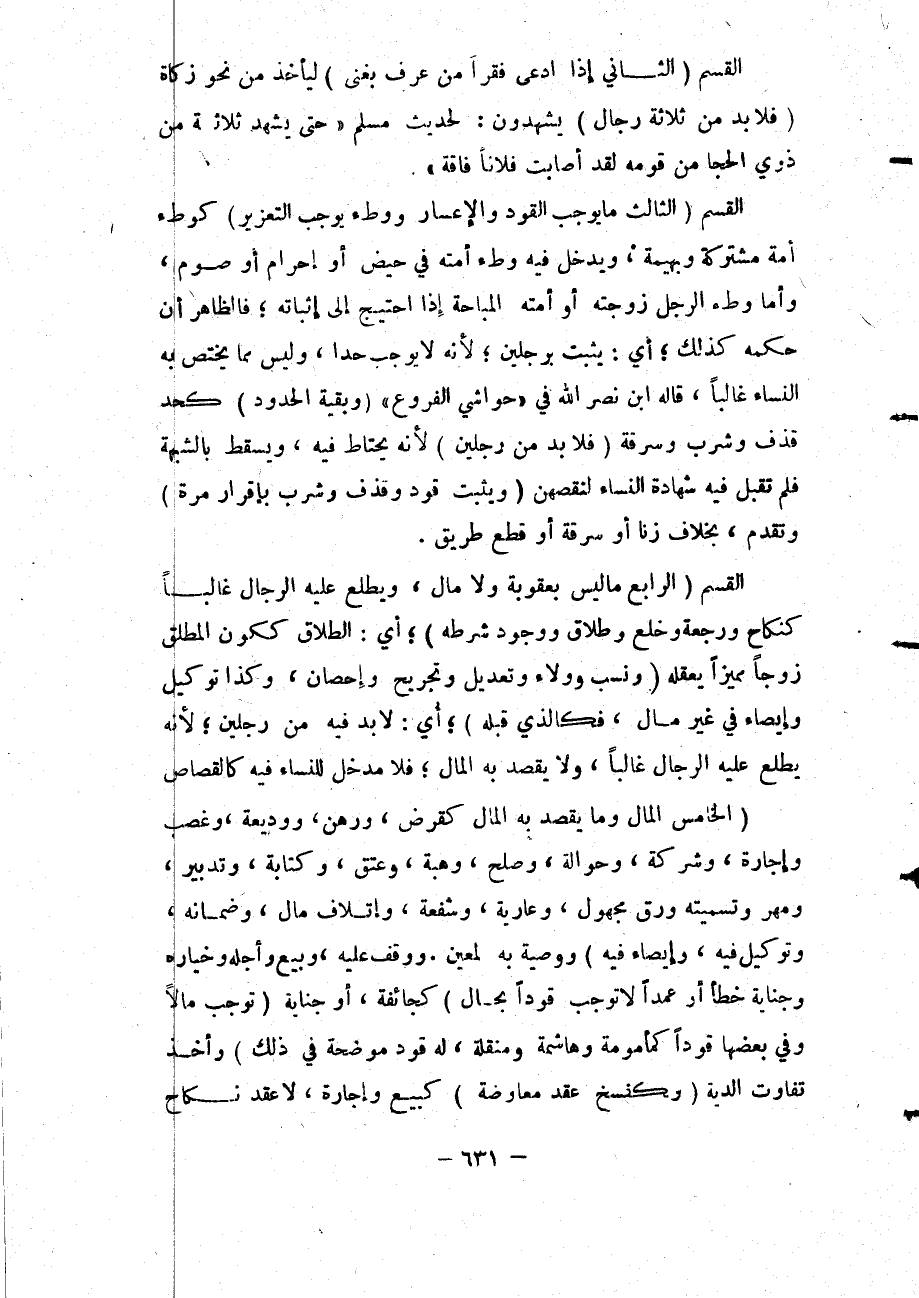 القسم ( الثـــاني إذا ادعى فقراً من عرف بغنى ) ليأخذ من نحو زكاة
( فلا بد من ثلاثة رجال ) يشهدون : لحديث مسلم « حتى يشهد ثلاثة من
ذوي الحجا من قومه لقد أصابت فلاناً فاقة » .
القسم ( الثالث مايوجب القود والإعسار ووطء يوجب التعزير ) كوطء
أمة مشتركة وبهيمة ، ويدخل فيه وطء أمته في حيض أو إحرام أو صـوم ،
وأما وطء الرجل زوجته أو أمته المباحة إذا احتيج إلى إثباته ؛ فالظاهر أن
حكمه كذلك ؛ أي : يثبت برجلين ؛ لأنه لايوجب حدا ، وليس مما يختص به
النساء غالباً ، قاله ابن نصر الله في «حواشي الفروع» (وبقية الحدود ) كحد
قذف وشرب وسرقة ( فلا بد من رجلين ) لأنه يحتاط فيه ، ويسقط بالشبهة
فلم تقبل فيه شهادة النساء لنقصهن ( ويثبت قود وقذف وشرب بإقرار مرة )
وتقدم ، بخلاف زنا أو سرقة أو قطع طريق .
القسم ( الرابع ماليس بعقوبة ولا مال ، ويطلع عليه الرجال غالبـــاً
كنكاح ورجعة وخلع وطلاق ووجود شرطه ) ؛ أي : الطلاق ككون المطلق
زوجاً مميزاً يعقله ( ونسب وولاء وتعديل وتجريح وإحصان ، وكذا توكيل
وإيصاء في غير مـال ، فكالذي قبله ) ؛ أي : لابد فيه من رجلين ؛ لأنه
يطلع عليه الرجال غالباً ، ولا يقصد به المال ؛ فلا مدخل للنساء فيه كالقصاص
( الخامس المال وما يقصد به المال كقرض ، ورهن ، ووديعة ، وغصب
وإجارة ، وشركة ، وحوالة ، وصلح ، وهبة ، وعتق ، وكتابة ، وتدبير ،
ومهر وتسميته ورق مجهول ، وعارية ، وشفعة ، وإتـلاف مال ، وضمـانه ،
وتوكيل فيه ، وإيصاء فيه ) ووصية به لمعين . ووقف عليه ، وبيع وأجله وخياره
وجناية خطأ أر عمداً لاتوجب قوداً بحـال ) كجائفة ، أو جناية ( توجب مالاً
وفي بعضها قوداً كمأمومة وهاشمة ومنقلة ، له قود موضحة في ذلك ) وأخـذ
تفاوت الدية ( وكفسخ عقد معاوضة ) كبيع وإجارة ، لا عقد نـــكاح
– ٦٣١ –